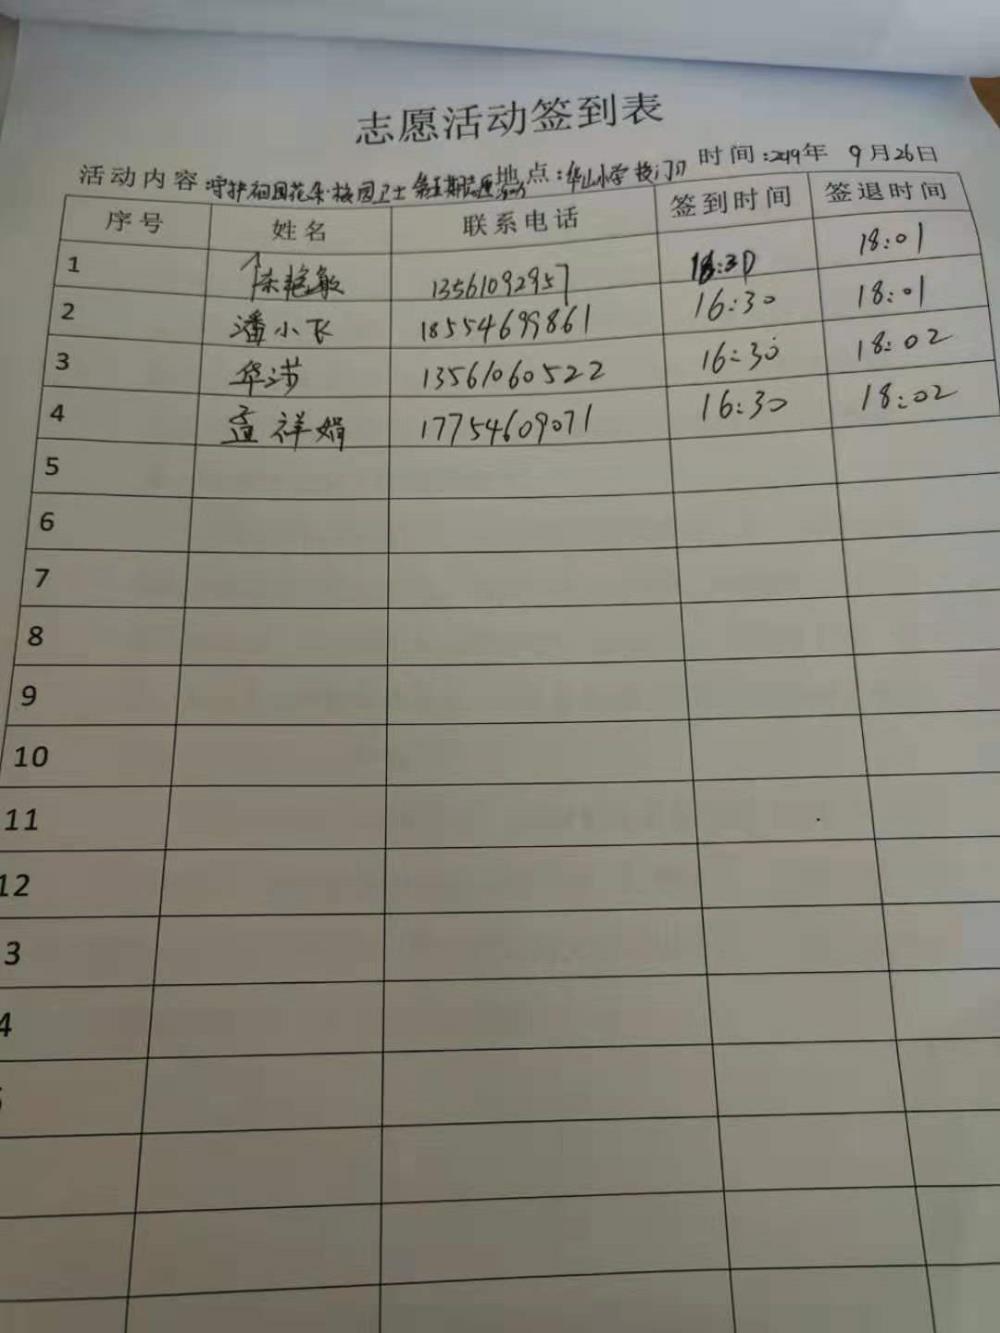 志愿活动签到表
活动内容:守护祖国花朵·校园卫士 第五期志愿 地点:华山小学校门口 时间:2019年 9月26日
序号 姓名 联系电话 签到时间 签退时间
1 陈艳敏 13561092957 16:30 18:01
2 潘小飞 18554699861 16:30 18:01
3 华涝 13561060522 16:30 18:02
4 孟祥娟 17754609071 16:30 18:02
5
6
7
8
9
10
11
12
3
4